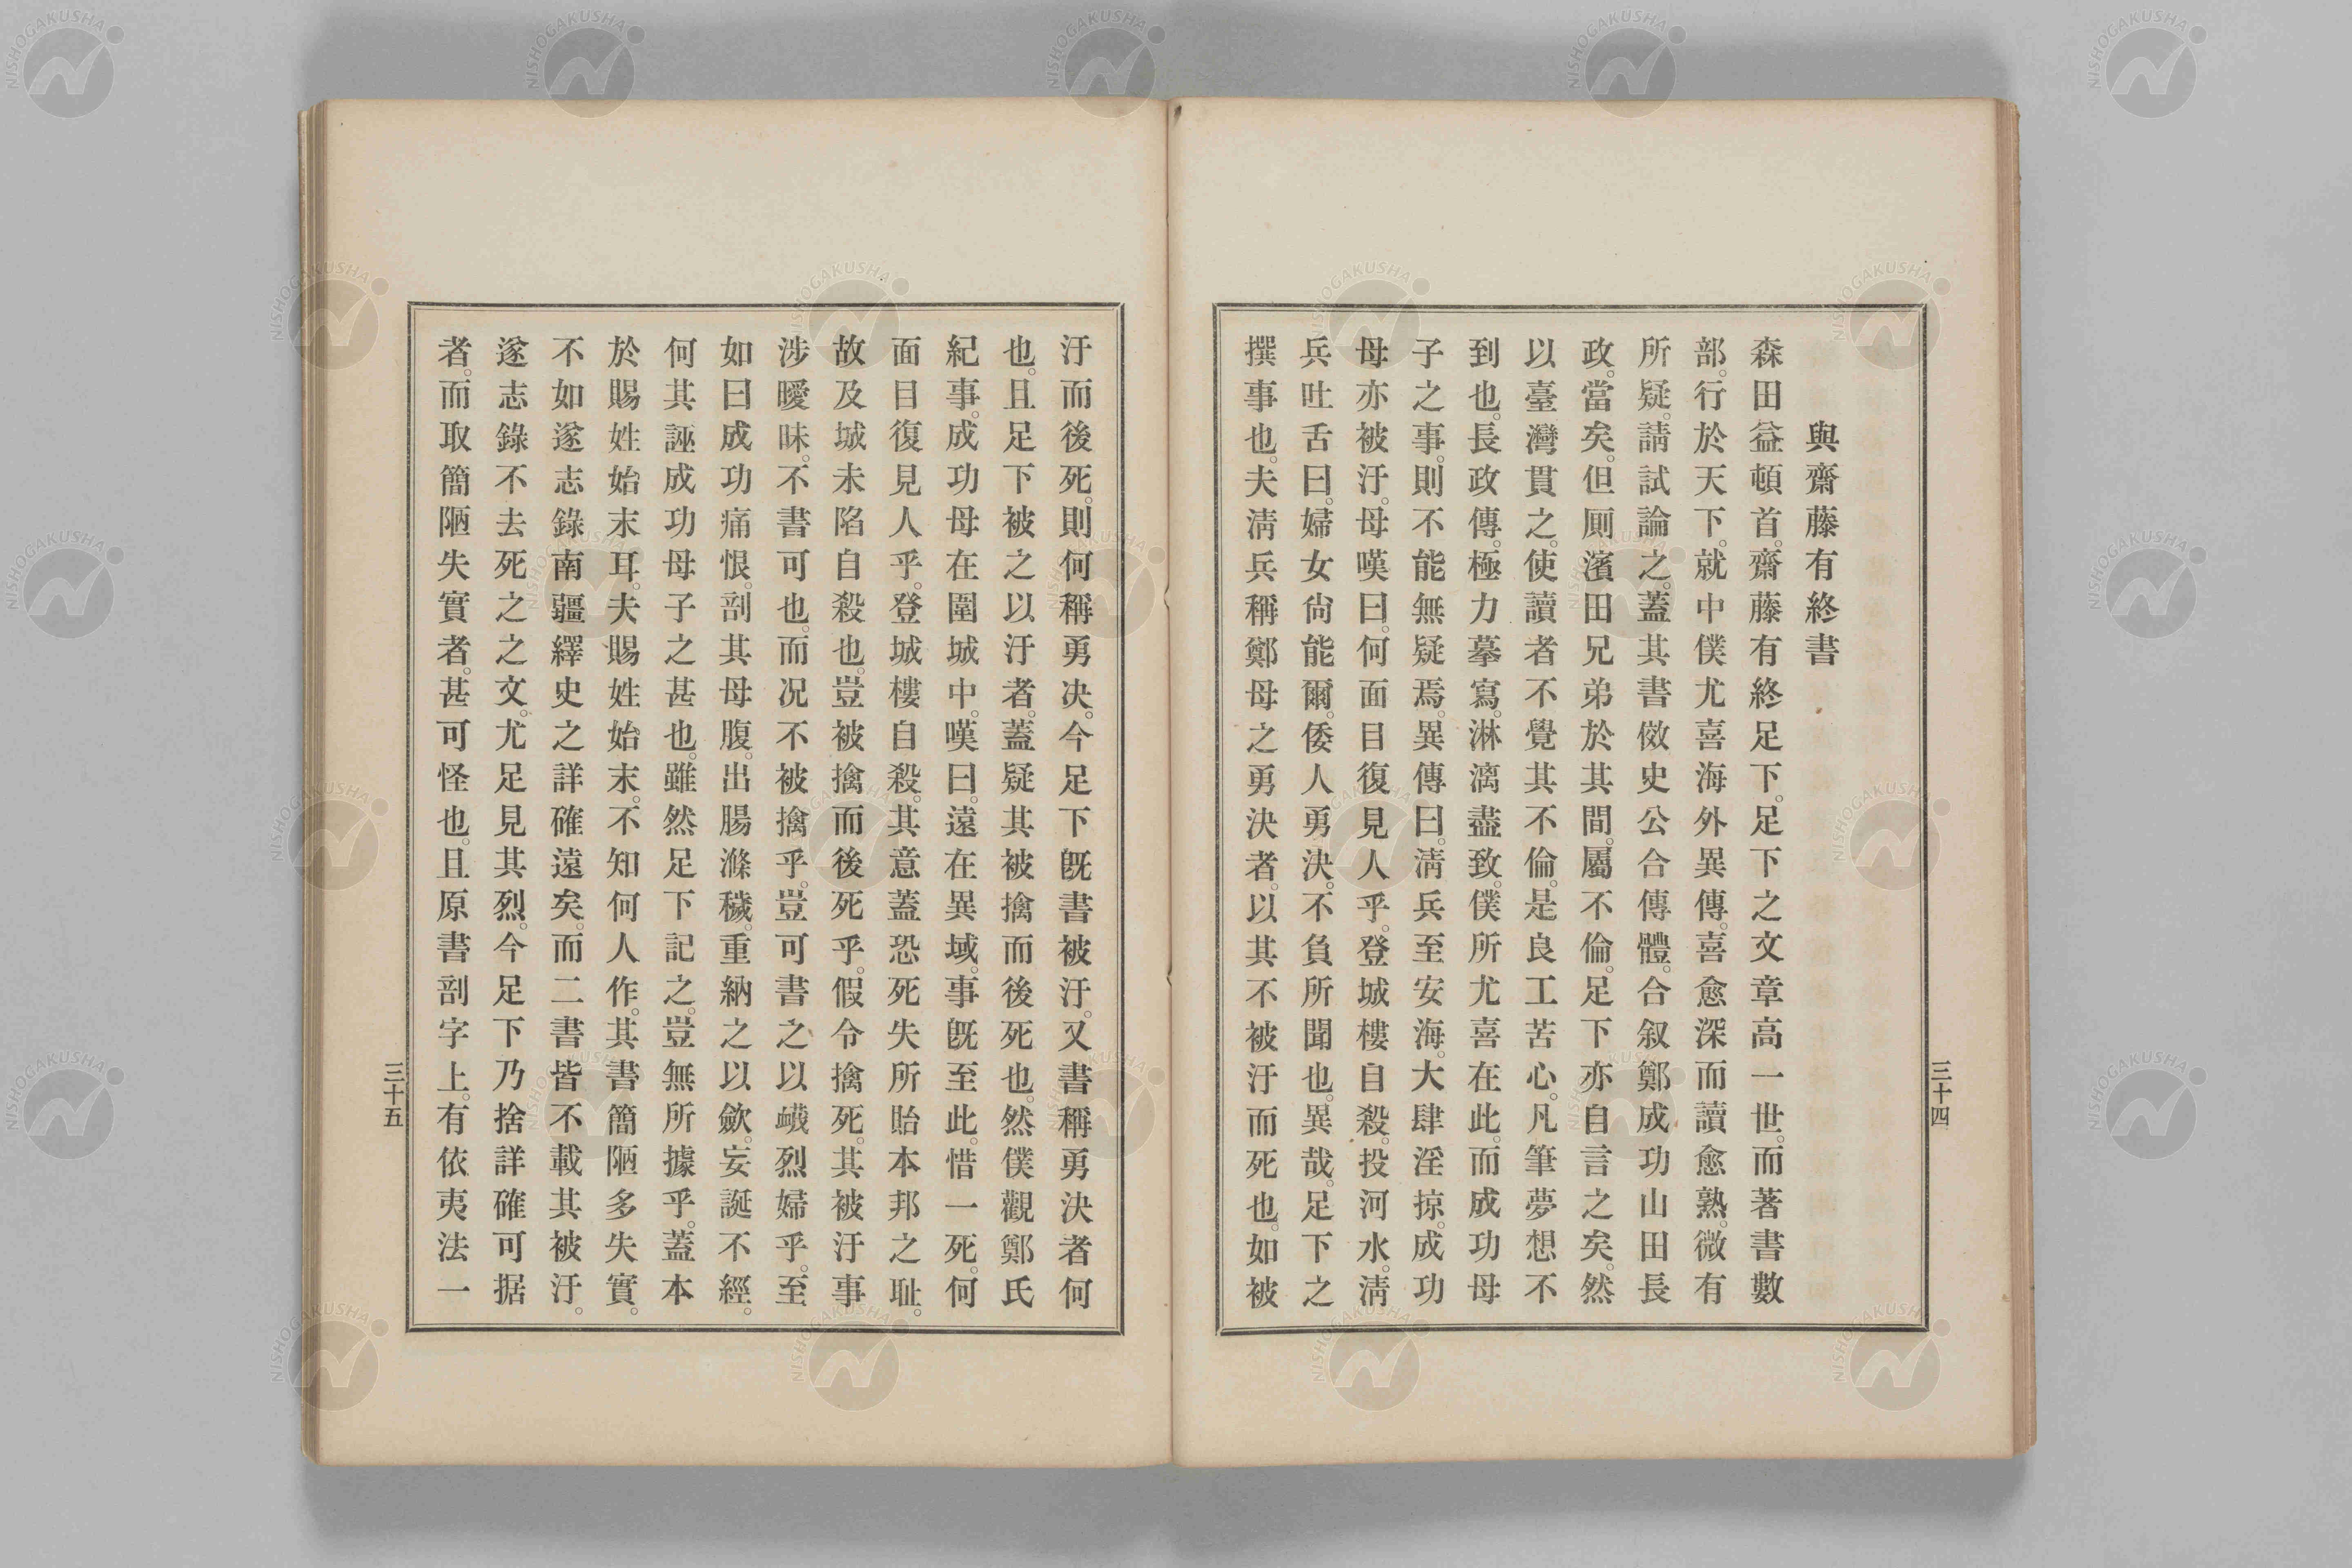 與齋藤有終書
森田益頓首。齋藤有終足下。足下之文章高一世。而著書數
部。行於天下。就中僕尤喜海外異傳。喜愈深而讀愈熟。微有
所疑。請試論之。蓋其書傚史公合傳體。合叙鄭成功山田長
政。當矣。但厠濱田兄弟於其間。屬不倫。足下亦自言之矣。然
以臺灣貫之。使讀者不覺其不倫。是良工苦心。凡筆夢想不
到也。長政傳。極力摹寫。淋漓盡致。僕所尤喜在此。而成功母
子之事。則不能無疑焉。異傳曰。淸兵至安海。大肆淫掠。成功
母亦被汙。母嘆曰。何面目復見人乎。登城樓自殺。投河水。淸
兵吐舌曰。婦女尙能爾。倭人勇決。不負所聞也。異哉。足下之
撰事也。夫淸兵稱鄭母之勇決者。以其不被汙而死也。如被
三十四
汙而後死。則何稱勇决。今足下旣書被汙。又書稱勇決者何
也。且足下被之以汙者。蓋疑其被擒而後死也。然僕觀鄭氏
紀事。成功母在圍城中。嘆曰。遠在異域。事旣至此。惜一死。何
面目復見人乎。登城樓自殺。其意蓋恐死失所貽本邦之耻。
故及城未陷自殺也。豈被擒而後死乎。假令擒死。其被汙事
涉曖昧。不書可也。而况不被擒乎。豈可書之以衊烈婦乎。至
如曰成功痛恨。剖其母腹。出腸滌穢。重納之以歛。妄誕不經。
何其誣成功母子之甚也。雖然足下記之。豈無所據乎。蓋本
於賜姓始末耳。夫賜姓始末。不知何人作。其書簡陋多失實。
不如遂志錄南疆繹史之詳確遠矣。而二書皆不載其被汙。
遂志錄不去死之之文。尤足見其烈。今足下乃捨詳確可据
者。而取簡陋失實者。甚可怪也。且原書剖字上。有依夷法一
三十五
NISHOGAKUSHA